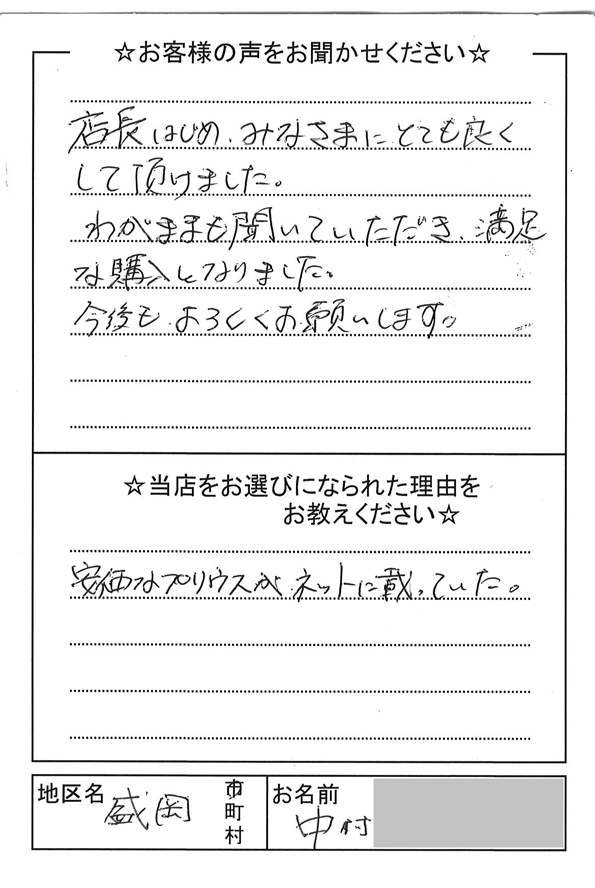 ☆お客様の声をお聞かせください☆
店長はじめ、みなさまにとても良く
して頂けました。
わがままも聞いていただき、満足
な購入となりました。
今後もよろしくお願いします。
☆当店をお選びになられた理由を
お教えください☆
安価なプリウスが、ネットに載っていた。
地区名 盛岡 市町村
お名前 中村